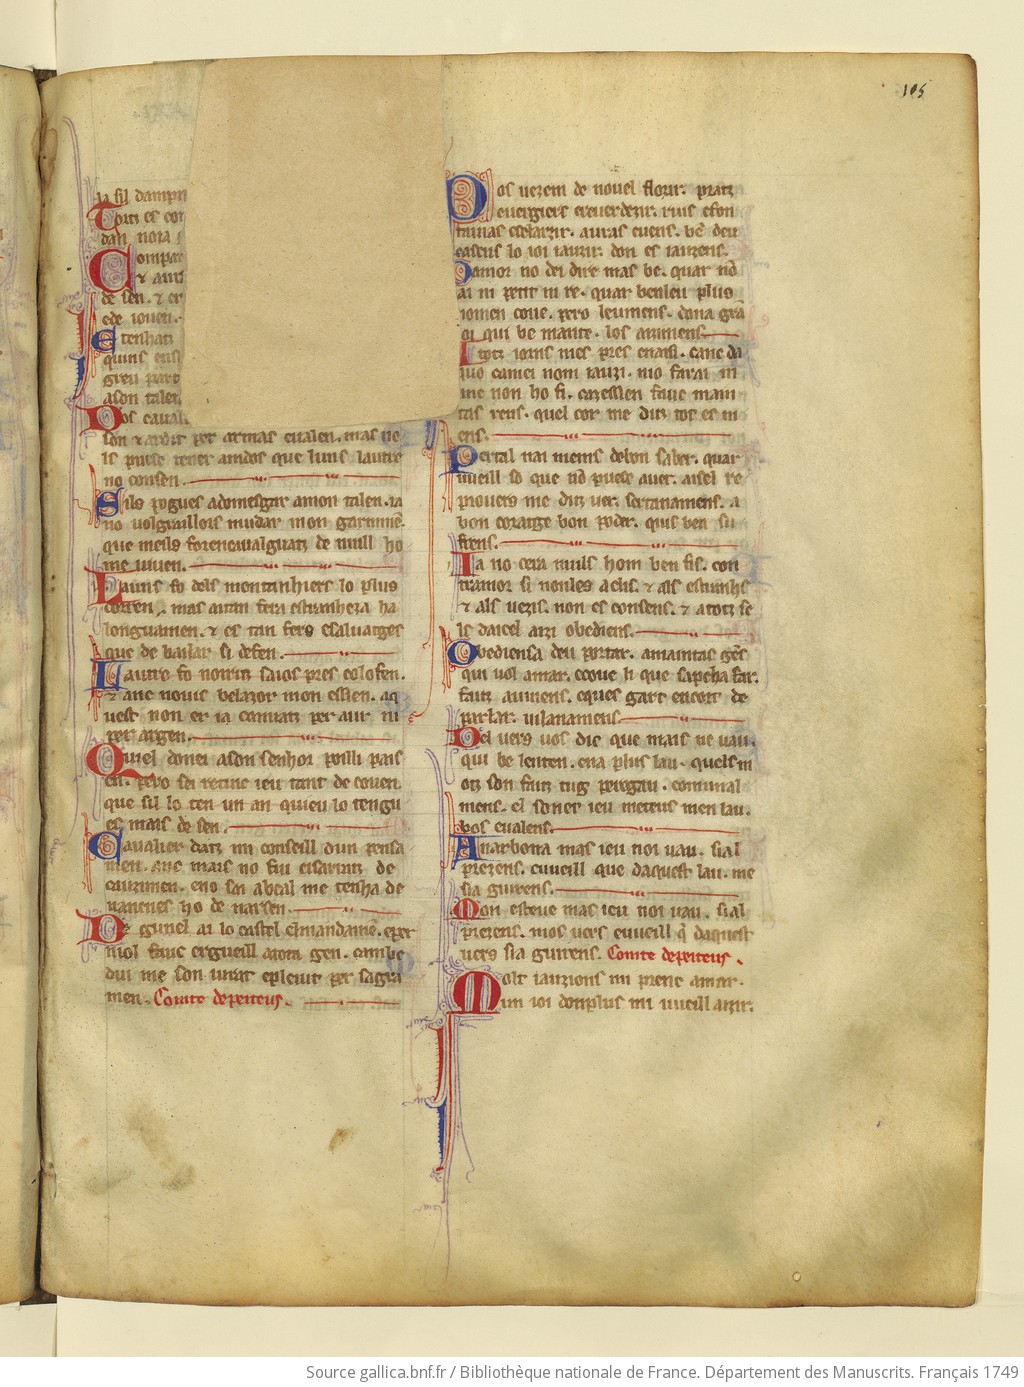 105
la fil dampn
Totz es cor
dan nora
Compar
de sen. & er
ede iouen.
E tenhatz
quins ensi
greu part
ason talen
Dos cauall
son & ardit per armas eualen. mas ne
ls puesc tener amdos que luns lautre
no consen.
Sils pogues adomesgar amon talen. ia
no uolgraillors mudar mon garnimē.
que meils foren caualguatz de nuill ho
me uiuen.
Launs fo dels montanhiers lo plus
corren. mas aitan fera estranheza ha
longuamen. & es tan fers esaluatges
que de bailar si defen.
Lautre fo noiritz saios pres colofen.
& anc nouis belazor mon essien. aq
uest non er ia camiatz per aur ni
per argen.
Quiel donei ason senhor poilli pais
en. pero sei retinc ieu tant de couen.
que sil lo ten un an quieu lo tengu
es mais de sen.
Caualier datz mi conseill dun pensa
men. anc mais no fui eisaratz de
cauzimen. eno sai abcal me tenha de
nanenes ho de narsen.
De guriel ai lo castel elmandamē. eper
niol fauc ergueill atota gen. cambe
dui me son iurat epleuit per sagra
men. Comte depeiteus.
Pos uezem de nouel florir. pratz
euergiers reuerdezir. riuis efon
tainas esclarzir. auras euens. bē deu
cascus lo ioi iauzir. don es iauzens.
Damor no dei dire mas be. quar nō
ai ni petit ni re. quar benleu plus
iomen coue. pero leumens. dona grā
oi qui be mante. los aizimens.
A totz iorns mes pres enaisi. canc da
quo camei nom iauzi. nio farai ni
anc non ho fi. cazessien fauc main
tas rens. quel cor me ditz tot es ni
ens.
Pertal nai meins debon saber. quar
uueill so que nō puesc auer. aisel re
prouers me ditz uer. sertanamens. a
bon coratge bon poder. quis ben su
frens.
Ia no cera nuils hom ben fis. con
tramor si nonles aclis. & als estranhs
& als uezis. non es consens. & atotz se
ls daicel aizi obediens.
Obediensa deu portar. amaintas gēs
qui uol amar. ecoue li que sapcha far.
faitz auinens. eques gart encort de
parlar. uilanamens.
Del uers uos dic que mais ne uau.
qui be lenten. ena plus lau. quels m
otz son faitz tug pereguau. comunal
mens. el soner ieu meteus men lau.
bos eualens.
Anarbona mas ieu noi uau. sial
prezens. euueill que daquest lau. me
sia guirens.
Mon esteue mas ieu noi uau. sial
prezens. mos uers euueill q̄ daquest
uers sia guirens. Comte depeiteus.
Molt iauzions mi prenc amar.
un ioi donplus mi uueill aizir.
Source gallica.bnf.fr / Bibliothèque nationale de France. Département des Manuscrits. Français 1749